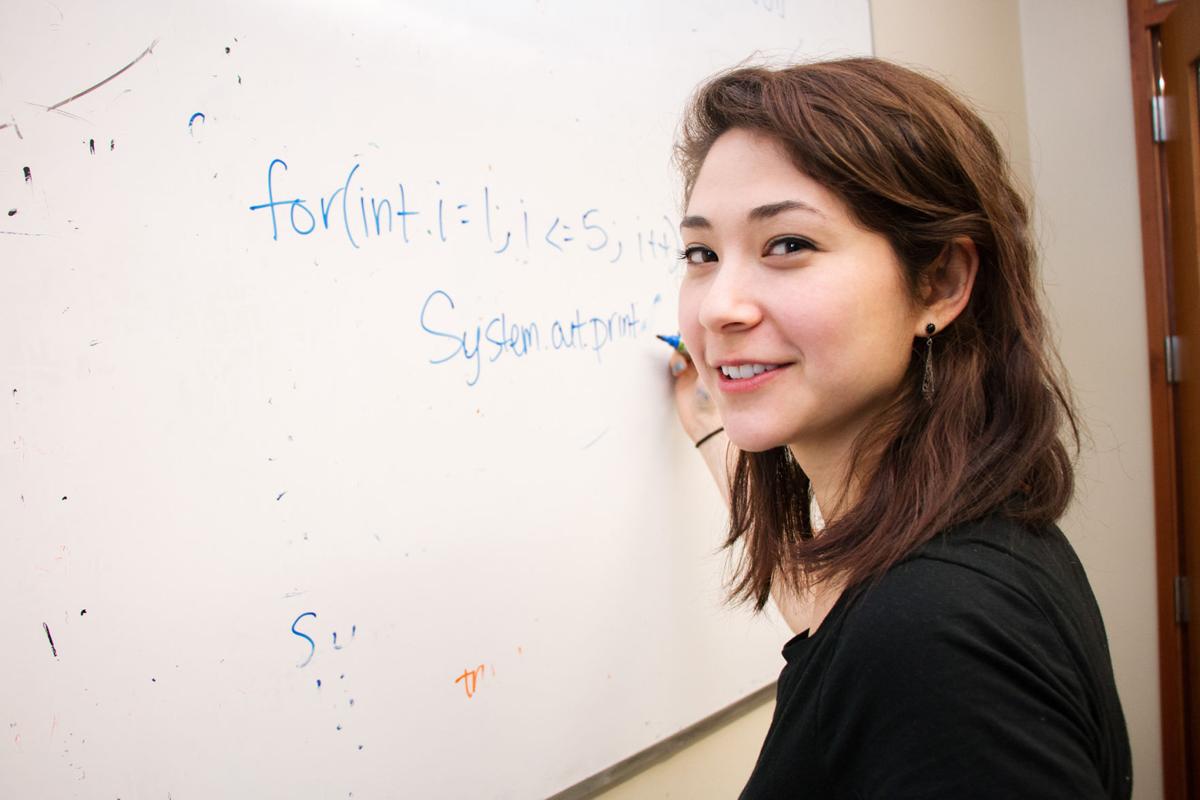 for(int i=1; i <=5; i++)
System.out.print
Su
tri